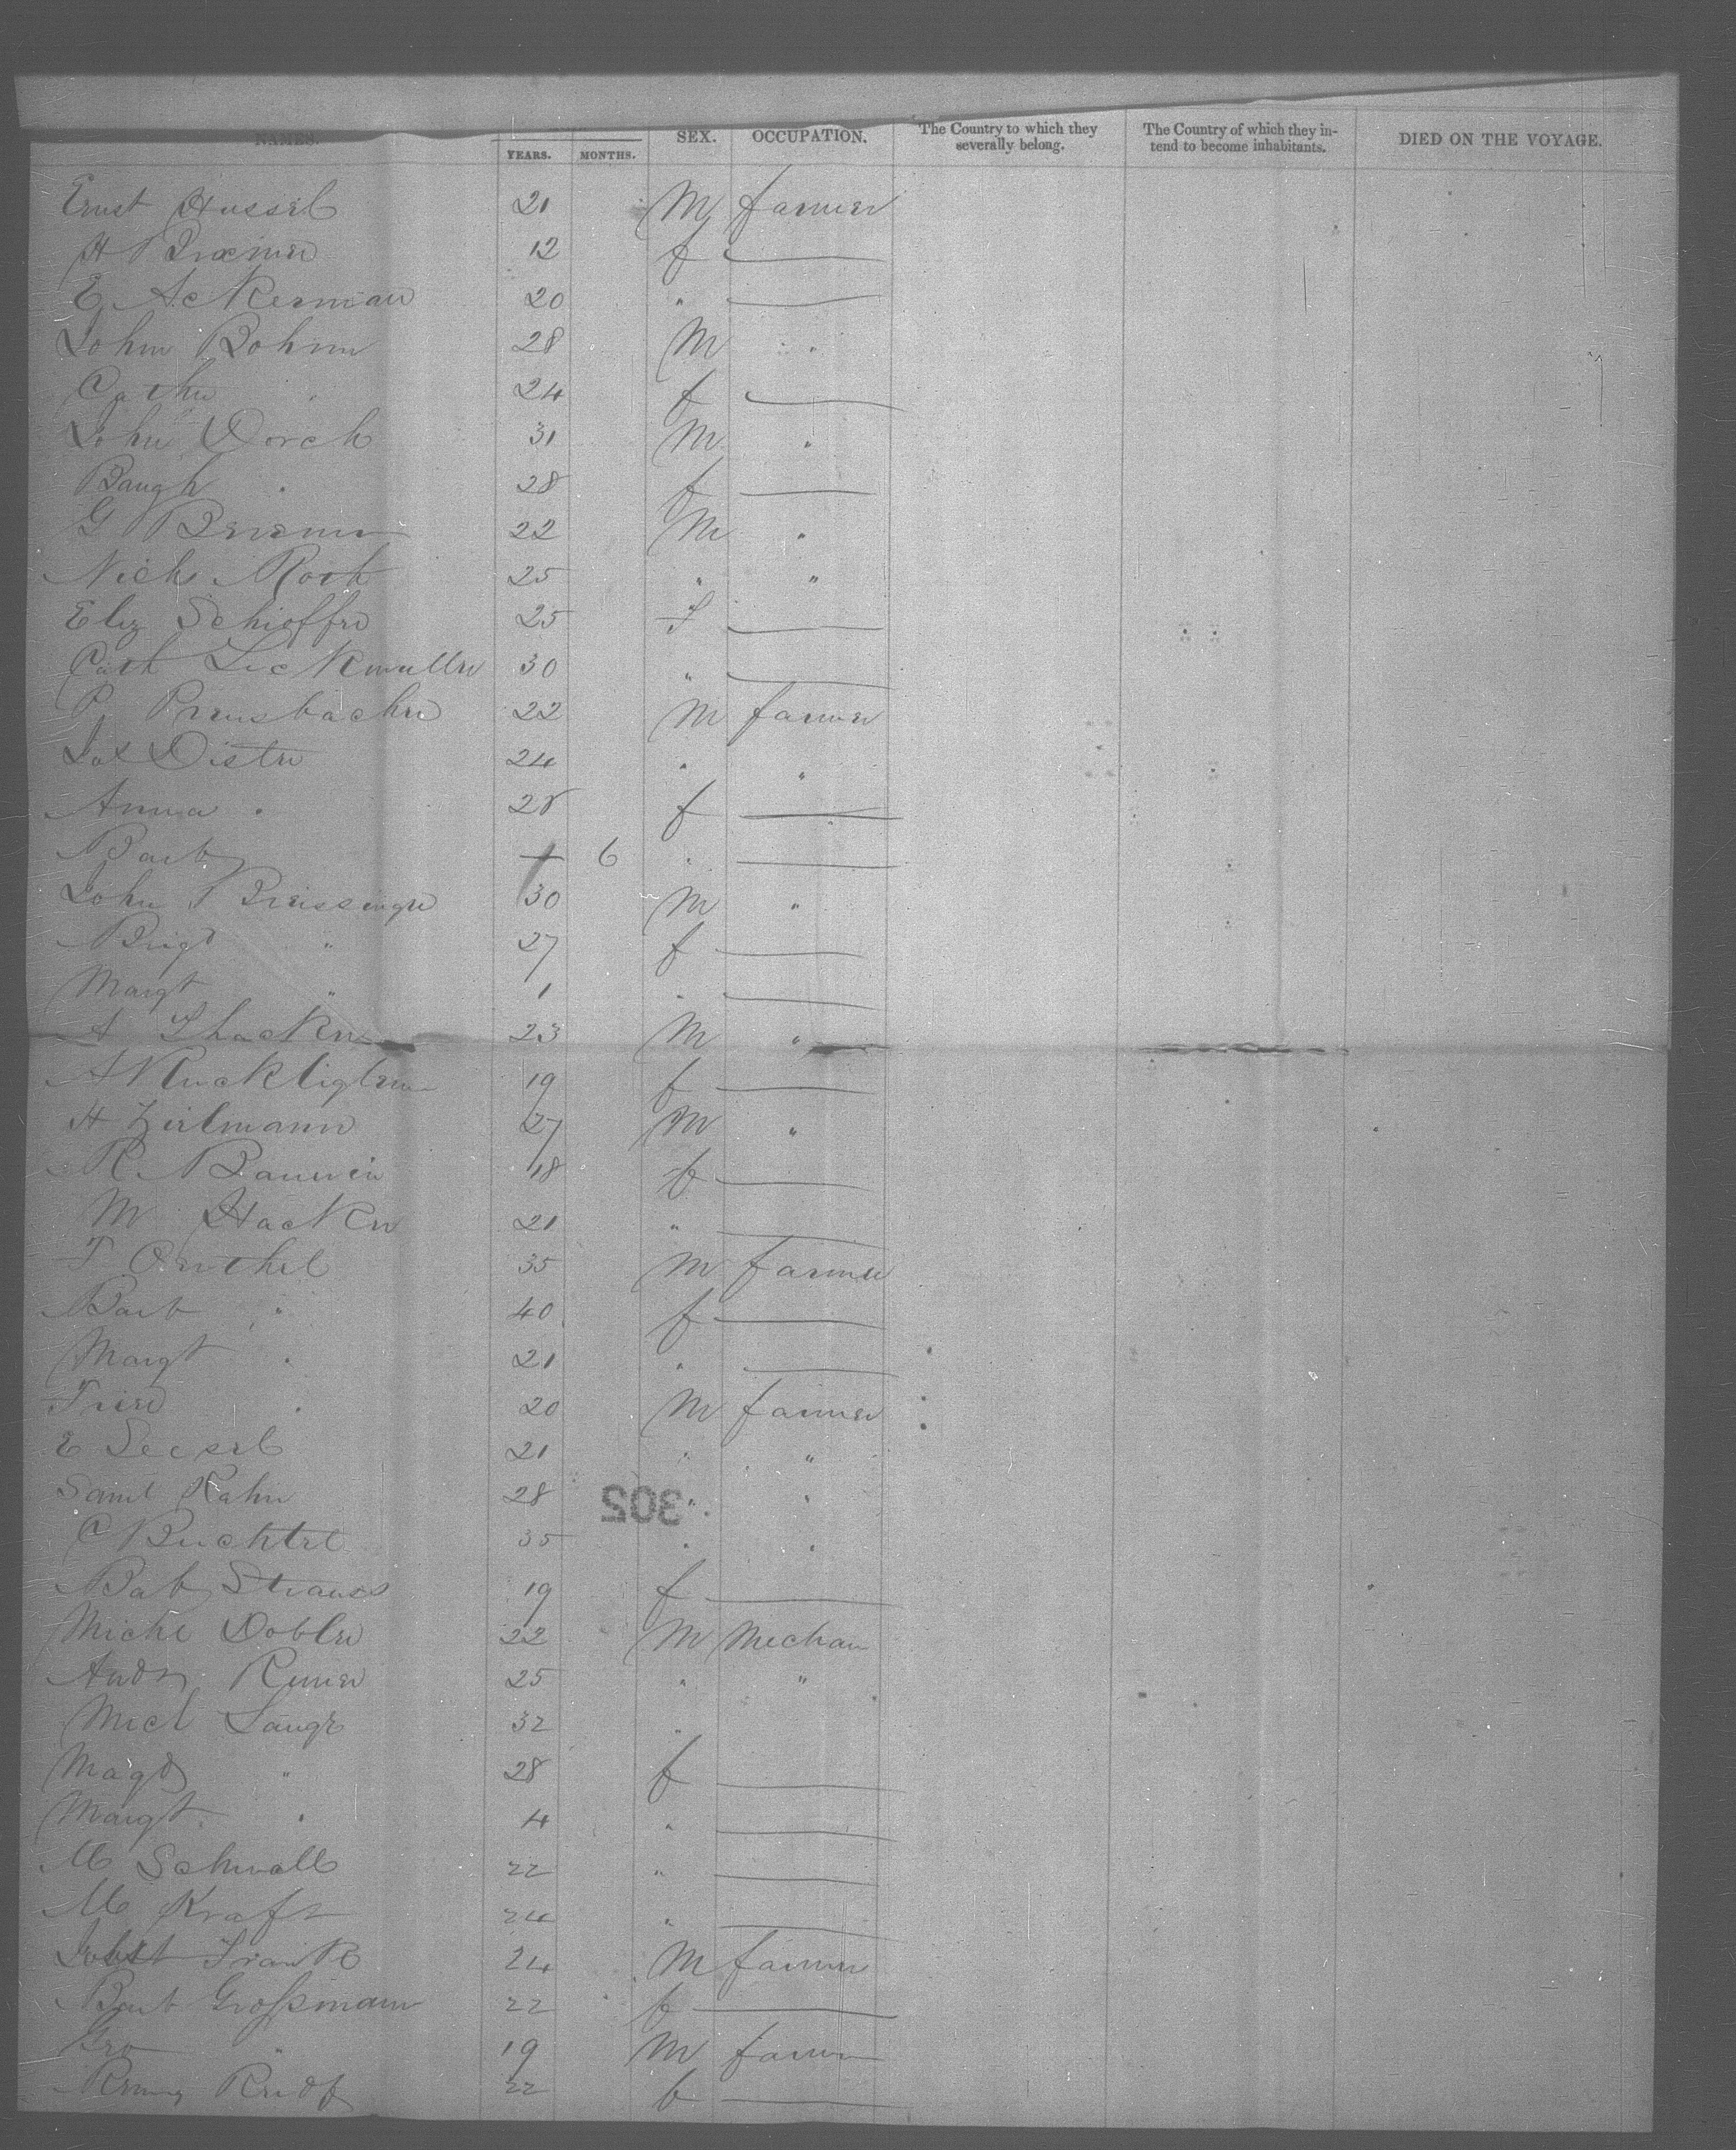 NAMES. YEARS. MONTHS. SEX. OCCUPATION. The Country to which they severally belong. The Country of which they intend to become inhabitants. DIED ON THE VOYAGE.
Ernst Hussel 21 M farmer
H 12 f
E Ackerman 20 "
John Bohm 28 M "
Cathe " 24 f
John Dorch 31 M "
28 f
G 22 M "
Nich Roth 25 " "
Eliz Schioffer 25 f
Cath 30 "
P Preusbacher 22 M farmer
Dister 24 " "
Anna " 28 f
Barb 6 "
John Brissinger 30 M "
Brigd " 27 f
Margt " 1 "
A Thacker 23 M "
A 19 f
H Zeilmann 27 M "
R 18 f
M Hacker 21 "
35 M farmer
Barb " 40 f
Margt " 21 "
" 20 M farmer
E 21 " "
Saml Kahn 28 " "
302
C Buchtel 35 " "
Bab Strauss 19 f
Michl Dobler 22 M Mechan
Andr 25 " "
Micl Lange 32 "
Magd " 28 f
Margt " 4 "
M Schwall 22 "
M Kraft 24 "
Jobst Frank 24 M farmer
Barb Großmann 22 f
Geo " 19 M farmer
22 f